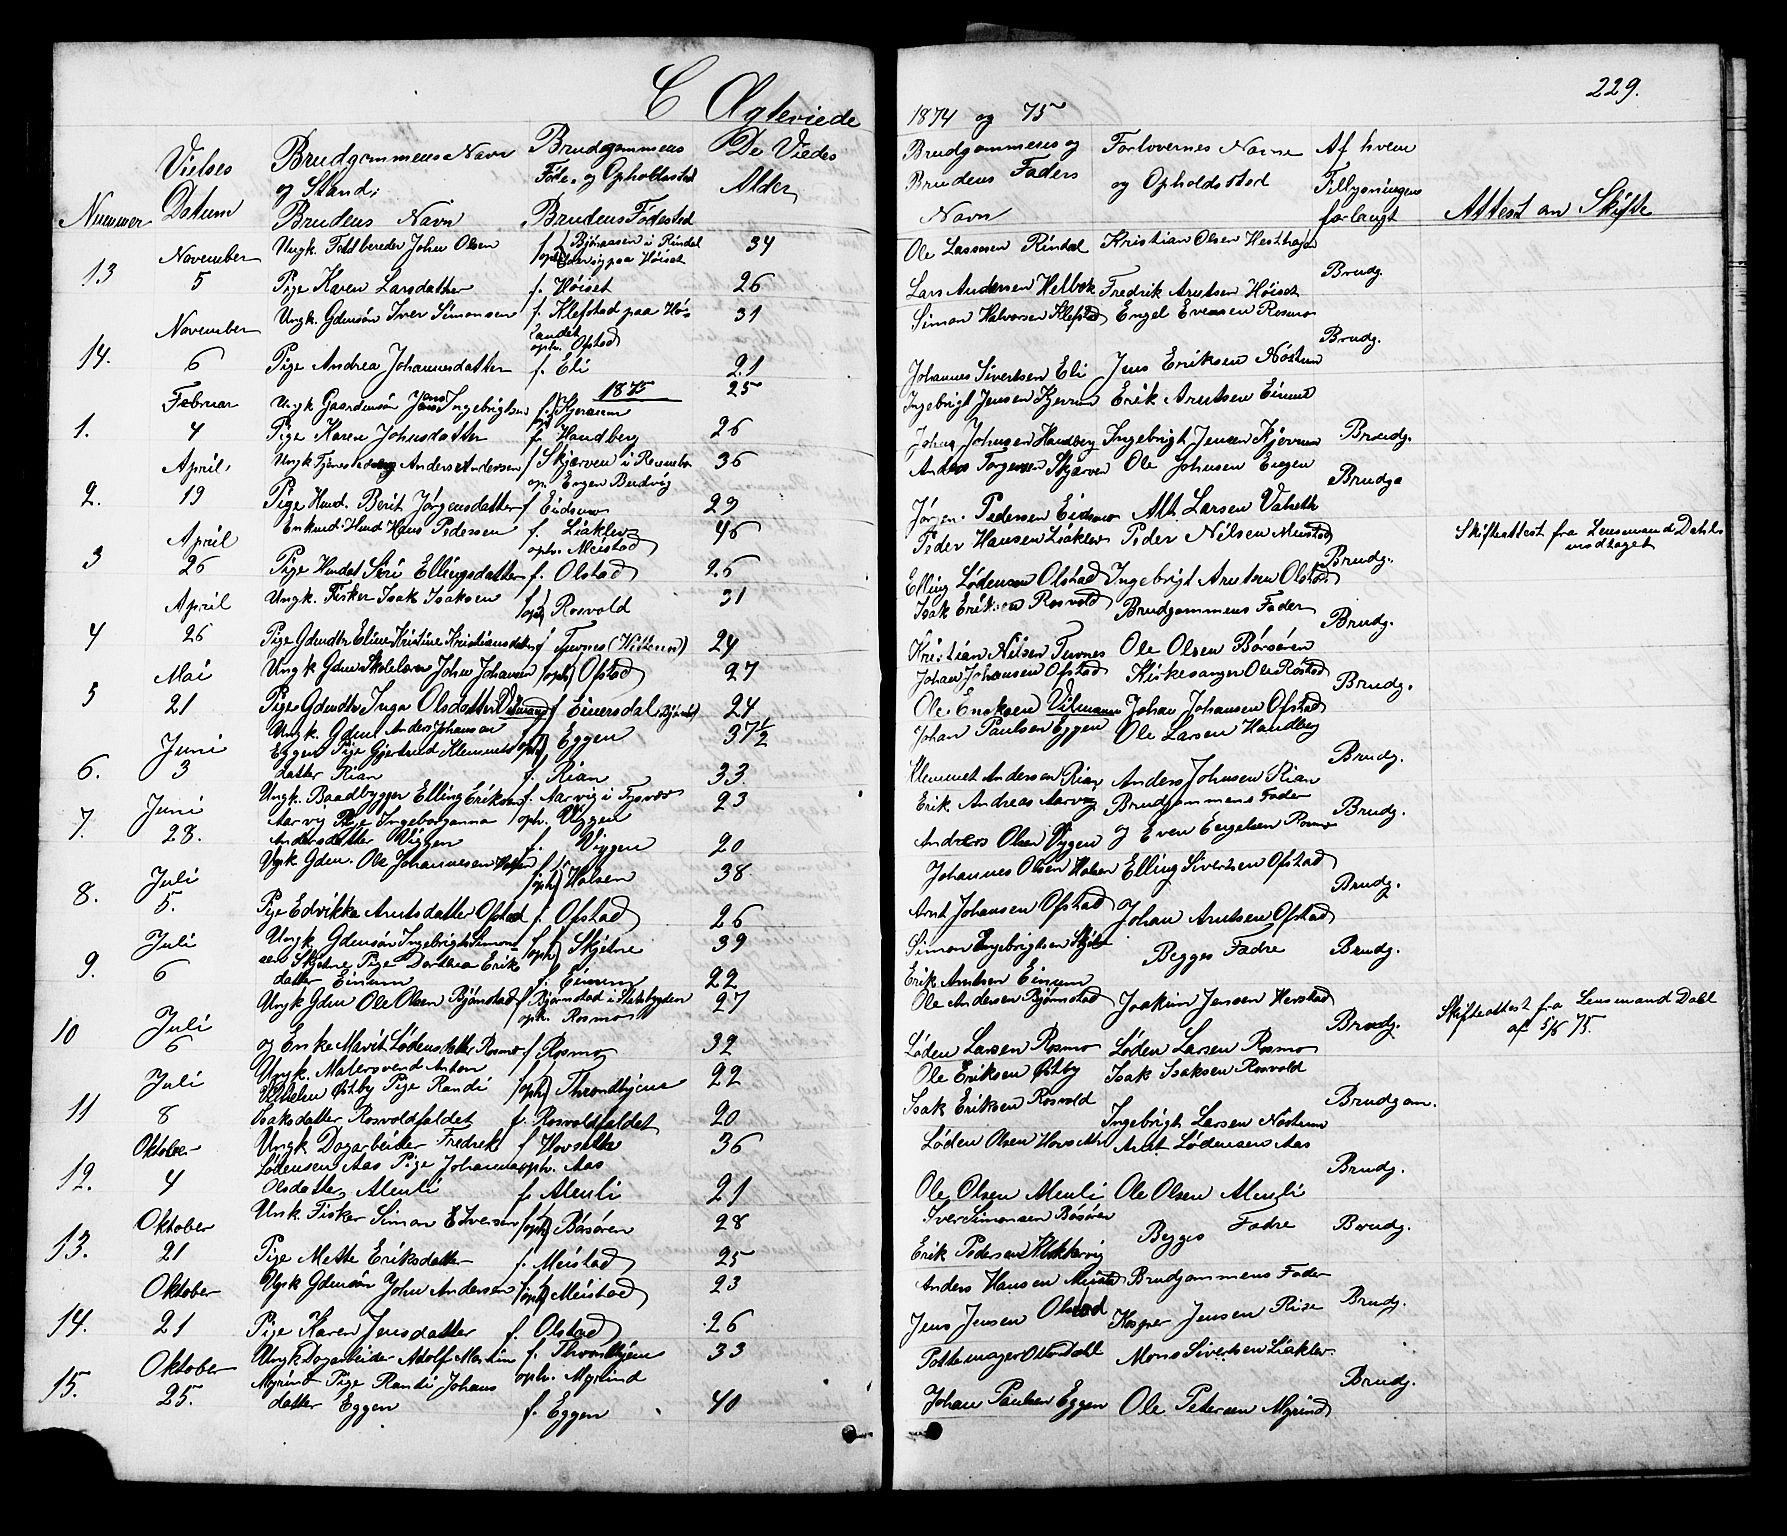 C Ægteviede
1874 og 75
229.
Nummer
Vielses Datum
Brudgommens Navn og Stand;
Brudens Navn
Brudgommens Føde- og Opholdssted
Brudens Fødested
De Viedes Alder
Brudgommens og Brudens Faders Navn
Forlovernes Navne og Opholdssted
Af hvem Tillysningen forlangt
Attest om Skifte
13 November 5 Ungk. Feldbereder John Olsen f. Bjøraasen i Rindal oph. Høiset 34 Ole Larssen Rindal Kristian Olsen Hesthagen
Pige Karen Larsdatter f. Høiset 26 Lars Andersen Helbek Fredrik Arntsen Høiset Brudg.
14. November 6 Ungk. Gdmsøn Iver Simonsen f. Klefstad paa Hø-landet oph. Ofstad 31 Simon Halvorsen Klefstad Engel Evensen Rosmo Brudg.
Pige Andrea Johannesdatter f. Eli 21 Johannes Sivertsen Eli Jens Eriksen Nostum
1875
1. Februar 4 Ungk Gaardmsøn Jens Ingebrigtsen f. Kjerrum 25 Ingebrigt Jensen Kjerrum Erik Arntsen Einum
Pige Karen Johnsdatter f. Handberg 26 Johns Johnsen Handberg Ingebrigt Jensen Kjerrum Brudg.
2. April 19 Ungk Tjenestedreng Anders Andersen f Skjærven i Rennebo op. Engen Budvig 36 Anders Torgersen Skjærven Ole Johnsen Engen Brudga
Pige Husd. Berit Jørgensdatter f Eidsmo 29 Jørgen Pedersen Eidsmo Mt. Larsen Valseth
3 April 26 Enkmd. Husd Hans Pedersen f. Liaklev oph. Meistad 46 Peder Hansen Liaklev Peder Nilsen Meistad Skifteattest fra Lensmand Dahl modtaget
Pige Husdat Siri Ellingsdatter f. Olstad 26 Elling Lødensen Olstad Ingebrigt Arntsen Olstad Brudg.
4 April 26 Ungk. Fisker Isak Isaksen f. oph. Rosvold 31 Isak Eriksen Rosvold Brudgommens Fader Brudg.
Pige Gdmdtr Eline Kristine Kristiansdatter f Turnes (Hitteren) 24 Kristian Nilsen Turnes Ole Olsen Børsøren
5 Mai 21 Ungk Gdm Skolelærer John Johansen f oph Ofstad 27 Johan Johansen Ofstad Kirkesanger Ole Røstad Brudg.
Pige Gdmdtr Inga Olsdatter Vilmann f Einersdal 24 Ole Eriksen Vilmann Johan Johansen Ofstad
6. Juni 3 Ungk Gdm Anders Johansen Eggen Pige Gjertrud Klemmets f oph Eggen 37½ Johan Paulsen Eggen Ole Larsen Handberg Brudg.
datter Rian f. Rian 33 Klemmet Anderson Rian Anders Johnsen Rian
7. Juni 28. Ungk. Baadbygger Elling Eriksen f. Aarvig i Fosnæs 23 Erik Andreas Aarvig Brudgommens Fader Brudg.
Aarvig Pige Ingeborganna oph. Viggen
Andersdatter Viggen f. Viggen 20 Anders Olsen Viggen og Even Engelsen Rosmo
8. Juli 5. Ungk Gdm. Ole Johannesen Halsen f oph Halsen 38 Johannes Olsen Halsen Elling Sivertsen Ofstad Brudg.
Pige Edvikke Arntsdatter Ofstad f. Ofstad 26 Arnt Johansen Ofstad Johan Arntsen Ofstad
9. Juli 6 Ungk Gdmsøn Ingebrigt Simon- f. oph Skjetne 39 Simon Ingebrigtsen Skjetne Begges Fadre Brudg.
sen Skjetne, Pige Dorthea Erik
datter Einum f. Einum 22 Erik Arntsen Einum
10 Juli 6 Ungk Gdm Ole Olsen Bjørnstad f. Bjørnstad i Stadsbygden oph. Rosmo 27 Ole Andersen Bjørnstad Joakim Jensen Herstad Brudg. Skifteattest fra Lensmand Dahl af 5/6 75.
og Enke Marit Lødensdatter Rosmo f Rosmo 32 Løden Larsen Rosmo Løden Larsen Rosmo
11 Juli 8 Ungk. Malersvend Anton f. oph Throndhjem 22 Ole Eriksen Østby Isak Isaksen Rosvold Brudgom.
Vilhelm Østby Pige Randi
Isaksdatter Rosvoldfaldet f. Rosvoldfaldet 20 Isak Eriksen Rosvold Ingebrigt Larsen Nostum
12. Oktober 4 Ungk Dagarbeider Fredrek f Hovsetre oph. Aas 36 Løden Olsen Hovsetre Arnt Lødensen Aas Brudg.
Lødensen Aas Pige Johanna
Olsdatter Alenli f. Alenli 21 Ole Olsen Alenli Ole Olsen Alenli
13. Oktober 21 Unk. Fisker Simon Edversen f. oph Bøsøren 28 Iver Simonsen Bøsøren Begges Fadre Brudg.
Pige Mette Eriksdatter f. Meistad 25 Erik Pedersen Klokkervig
14. Oktober 21 Ungk Gdmsøn John Andersen f. oph Meistad 23 Anders Hansen Meistad Brudgommens Fader Brudg.
Pige Karen Jensdatter f. Olstad 26 Jens Jensen Olstad Kasper Jensen Rise
15. Oktober 25. Ungk Dagarbeider Adolf Martin f. Throndhjem oph. Myrind 33 Pottemager Otto Dahl Mons Sivertsen Liaklev Brudg.
Myrind Pige Randi Johans
datter Eggen f. Eggen 40 Johan Paulsen Eggen Ole Petersen Myrind